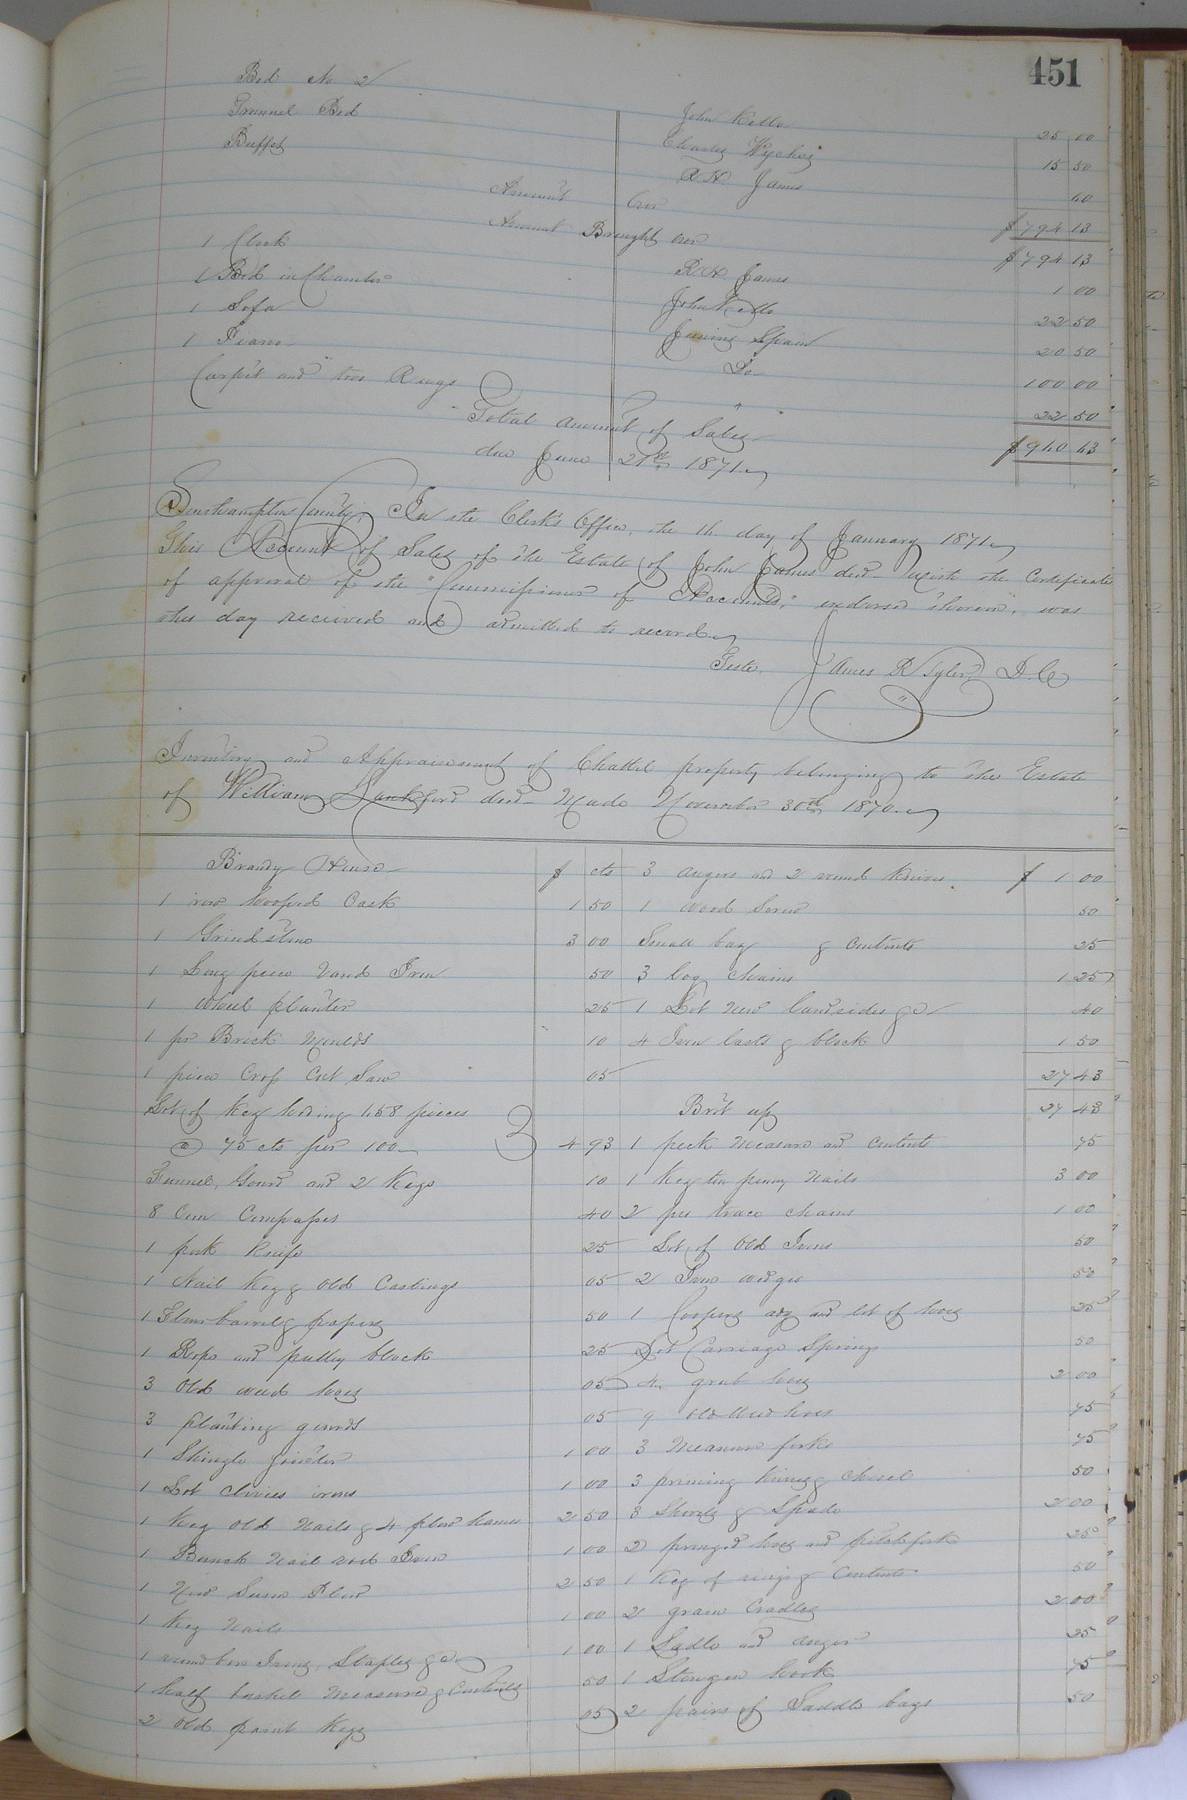 451
Bed No 2 John Kello 25 00
Trunnel Bed Charles Wyche 15 50
Buffet R H James 60
Amount Over $794 13
Amount Brought over $794 13
1 Clock R H James 1 00
1 Bed in Chamber John Kello 22 50
1 Sofa Spain 20 50
1 Piano Do 100 00
Carpet and two Rugs " " 22 50
Total amount of Sales $960 63
due June 21st 1871
Southampton County, In the Clerk's Office, the 16 day of January 1871
This Account of Sales of the Estate of John James decd with the Certificate
of approval of the "Commissioner of Accounts," endorsed thereon, was
this day received and admitted to record
Teste, James R Tyler D.C.
Inventory and Appraisement of Chattel property belonging to the Estate
of William Lankford decd Made November 30th 1870
Brandy House $ cts
1 iron hooped Cask 1 50
1 Grindstone 3 00
1 Long piece band Iron 50
1 Wheel planter 25
1 pr Brick Moulds 10
1 piece Cross Cut Saw 05
Lot of Keg 658 pieces
@ 75 cts per 100 4 93
Funnel, Gourd and 2 Kegs 10
8 Compasses 40
1 pork Knife 25
1 Nail Keg & Old Castings 05
1 Flour barrel & papers 50
1 Rope and pulley block 25
3 Old weed hoes 05
3 planting gourds 05
1 Shingle jointer 1 00
1 Lot clevis irons 1 00
1 Keg old Nails & 4 plow hames 2 50
1 Bunch Nail rod Iron 1 00
1 New Plow 2 50
1 Keg Nails 1 00
1 Irons, Staples &c 1 00
1 half bushel Measure & Contents 50
2 Old paint Kegs 05
3 augers and 2 round Knives $ 1 00
1 Wood Screw 50
Small bag & Contents 25
3 log chains 1 25
1 Lot New landsides &c 40
4 Iron lasts & block 1 50
27 43
Brot up 27 43
1 peck Measure and Contents 75
1 Keg ten penny Nails 3 00
2 prs trace chains 1 00
Lot of Old Irons 50
2 Iron wedges 50
1 Coopers adz and lot of hoes 25
Lot Carriage Springs 50
4 grub hoes 2 00
9 old Weed hoes 75
3 Manure forks 75
3 pruning Knives & Chisel 50
3 Shovels & Spade 2 00
2 pronged hoes and pitchfork 25
1 Keg of rings & Contents 50
2 grain Cradles 2 00
1 Ladle and auger 25
1 Sturgeon hook 75
2 pairs of Saddle bags 50